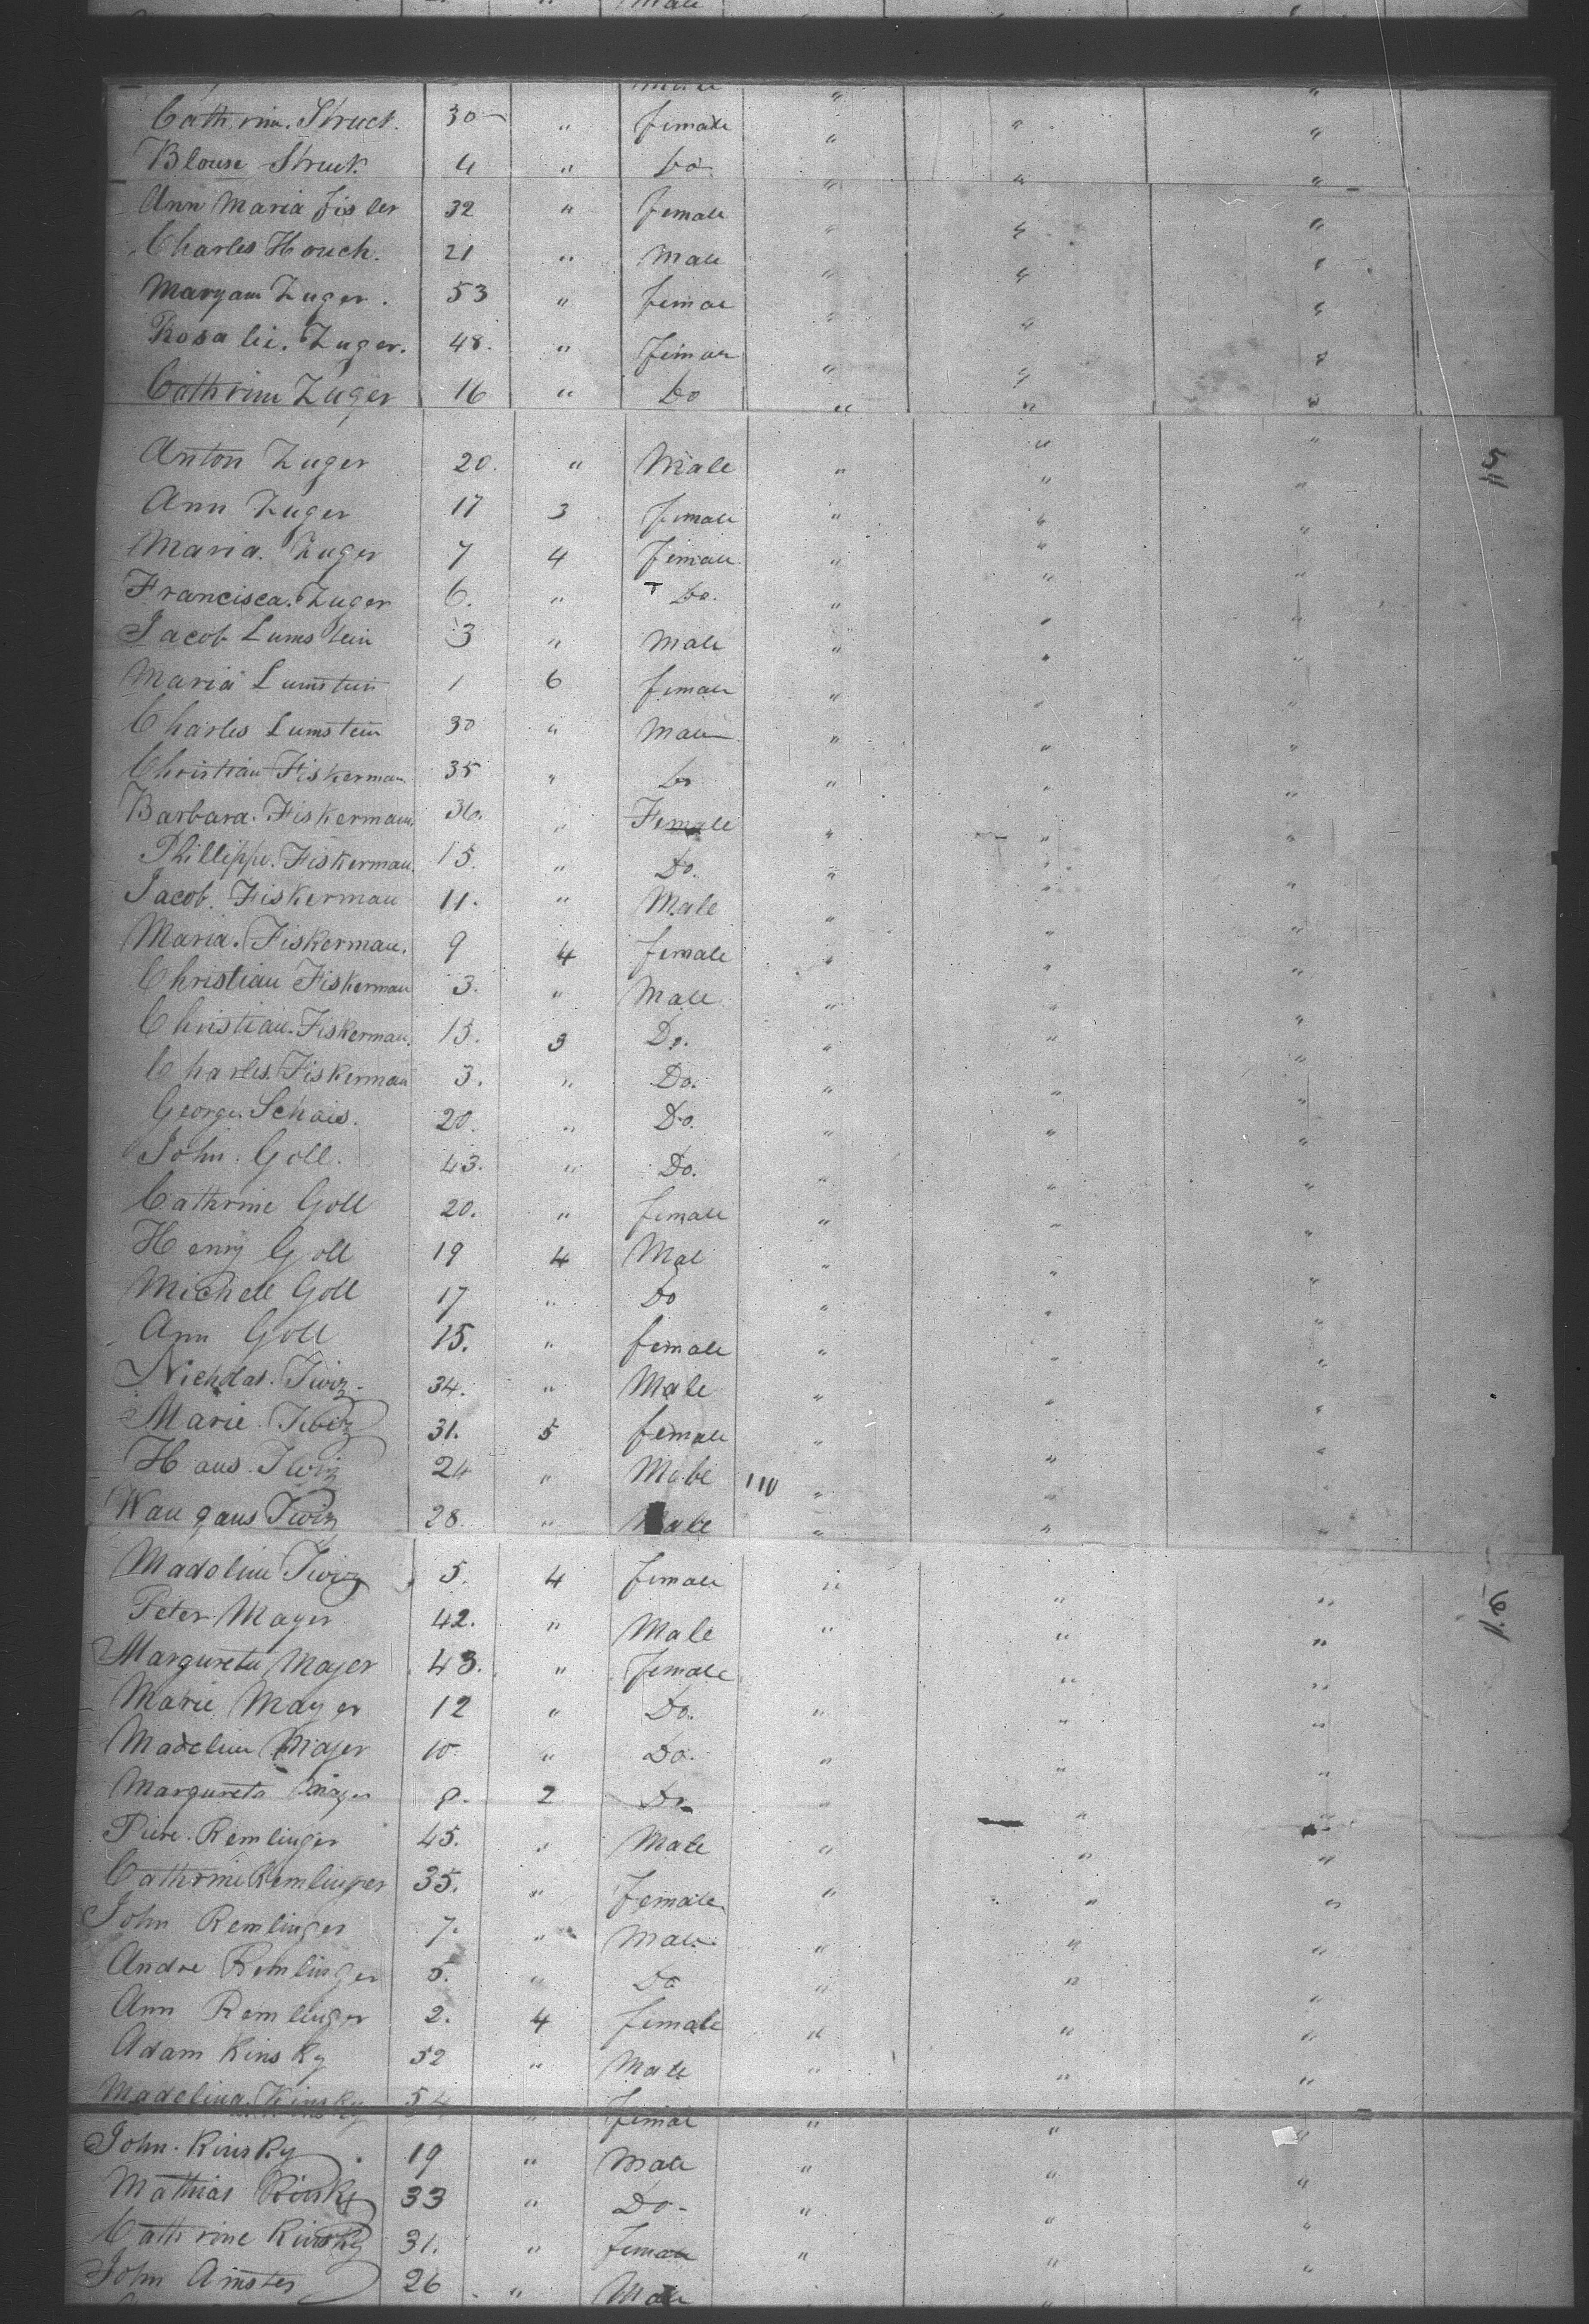 Male
Cathrine. Struct. 30 " female " " "
Blouse Struck 4 " Do " " "
Ann Maria Fisler 32 " female " " "
Charles Houch. 21 " Male " " "
Maryann Zuger. 53 " femae " " "
Rosalie. Zuger. 48. " Femae " " "
Cathrine Zuger 16 " Do " " "
Anton Zuger 20. " Male " " "
Ann Zuger 17 3 female " " "
Maria. Zuger 7 4 Female " " "
Francisca. Zuger 6. " Do. " " "
Jacob Lumstein 3 " Male " " "
Maria Lumstein 1 6 female " " "
Charles Lumstein 30 " Male " " "
Christian Fiskerman 35 " Do " " "
Barbara. Fiskerman. 36. " Female " " "
Phillippe. Fiskerman. 15. " Do. " " "
Jacob. Fiskerman 11. " Male " " "
Maria. Fiskerman. 9 4 female " " "
Christian Fiskerman 3. " Male " " "
Christian. Fiskerman. 15. 3 Do. " " "
Charles. Fiskerman 3. " Do. " " "
George. Schais. 20. " Do. " " "
John. Goll. 43. " Do. " " "
Cathrine Goll 20. " female " " "
Henry Goll 19 4 Mal " " "
Michell Goll 17 " Do " " "
Ann Goll 15. " female " " "
Nicholas. Twiz. 34. " Male " " "
Marie. Twiz 31. 5 female " " "
Haus. Twiz 24 " Male 110 " " "
Waugaus Twiz 28. " Male " " "
Madeline Twiz 5. 4 female " " "
Peter Mayer 42. " Male " " "
Margureta Mayer 43. " female " "
Marie Mayer 12 " Do. " " "
Madeline Mayer 10. " Do. " " "
Margureta Mayer 8. 2 Do " " "
Piere. Remlinger 45. " Male " " "
Cathrine Remlinger 35. " Female. " " "
John Remlinger 7. " Male. " " "
Andre Remlinger 5. " Do " " "
Ann Remlinger 2. 4 female " " "
Adam Kinsky 52 " Male " " "
Madelina. Kinsky 54 " femal " " "
John. Kinsky 19 " Male " " "
Mathias Kinsky 33 " Do- " " "
Cathrine Kinsky 31. " female " " "
John Amster 26 " Male "